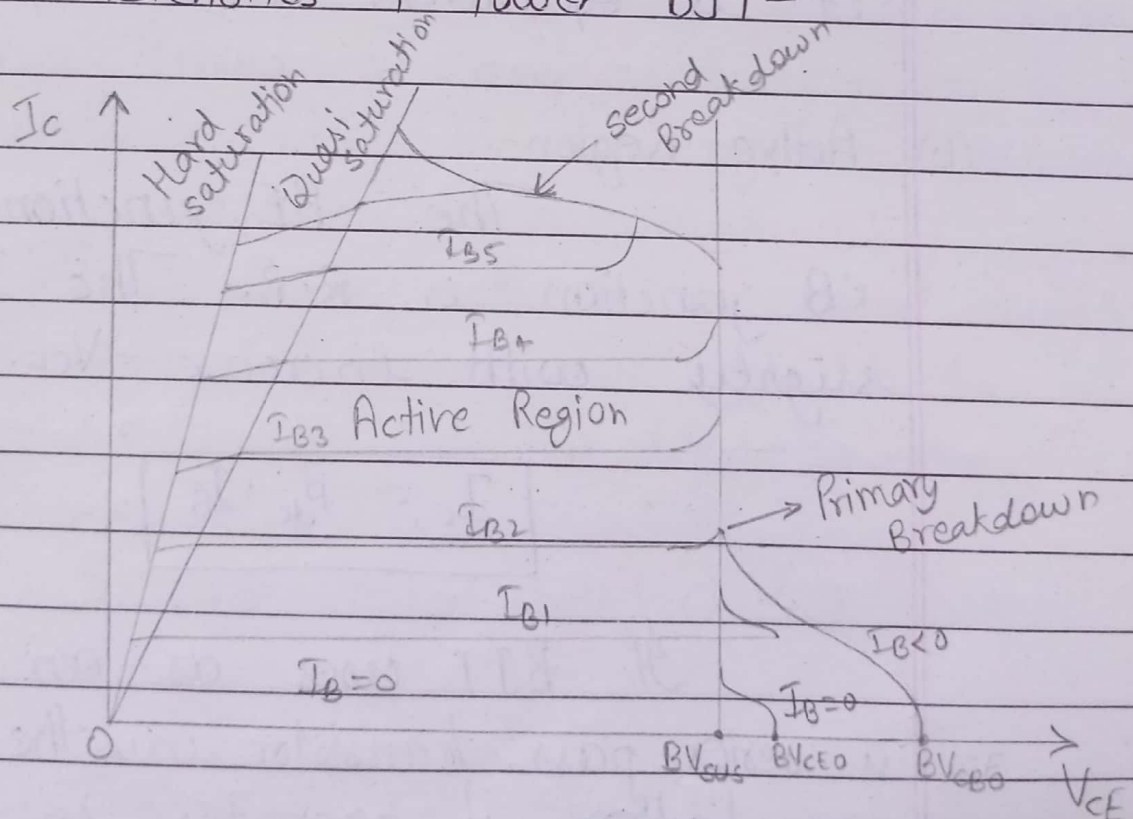 Power BJT-
Ic
Hard
saturation
Quasi
saturation
second
Breakdown
IB5
IB4
IB3 Active Region
Primary
Breakdown
IB2
IB1
IB<0
IB=0
IB=0
O
BVSUS
BVCEO
BVCBO
VCE